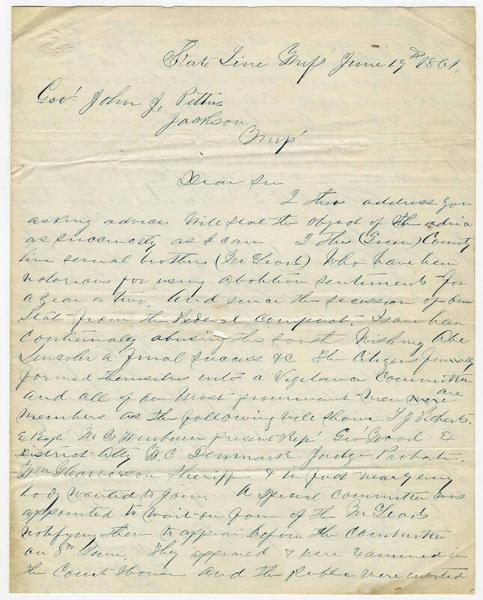 State Line Miss June 19th 1861.
Gov John J. Pettus
Jackson
Miss
Dear Sir
I thus address you
asking advice will state the object of the advice
as succinctly as I can. I This (Green) County
live several brothers (McLeod) Who have been
notorious for using abolition sentiments for
a year or two. And since the secession of our
State from the Federal Compact. have been
continually abusing the South Wishing Abe
Lincoln a final success &c The Citizens generally
formed themselves into a Vigilance Committee
and all of our most prominent men are
members as the following will show T J Roberts.
E Rep' Mc present Rep' Geo Wood Ex
District Atty W. C. Denmark Judge Probate
Wm Sheriff & in fact nearly every
body wanted to join. A special committee was
appointed to wait on four of the McLeods
notifying them to appear before the Committee
on 8th June. They appeared & were examined in
the Court House and the Public were invited